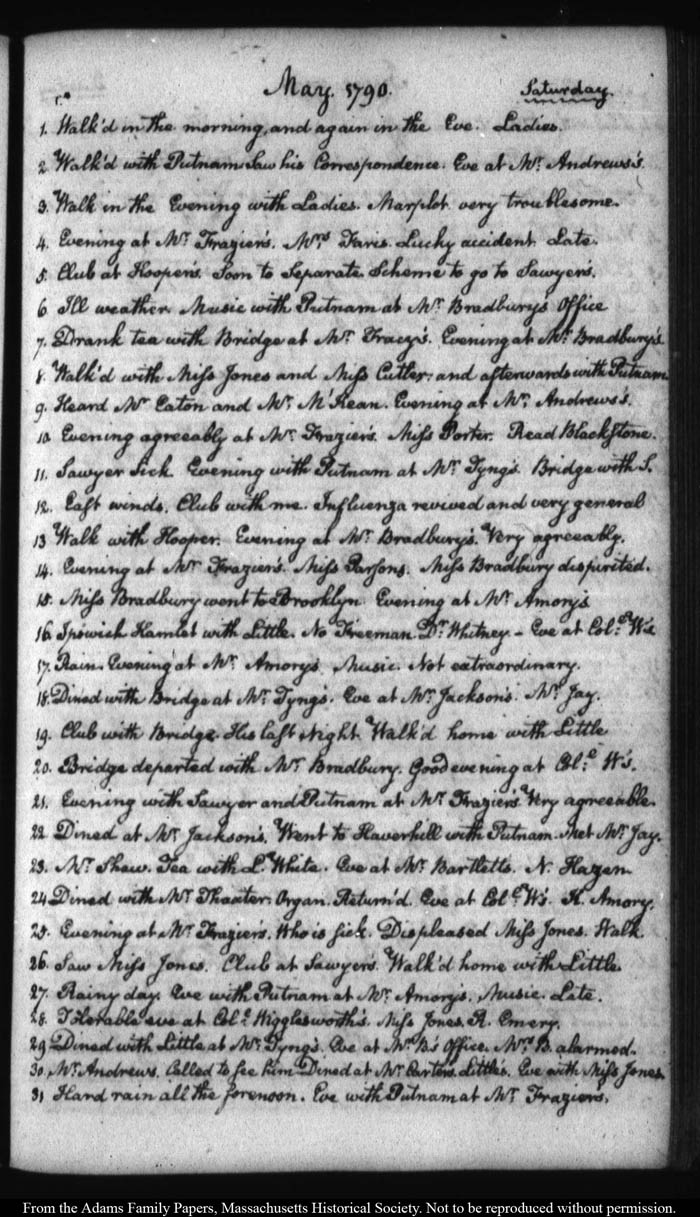 May. 1790.
Saturday.
1. Walk'd in the morning, and again in the Eve. Ladies.
2. Walk'd with Putnam. Saw his Correspondence. Eve at Mr. Andrews's.
3. Walk in the Evening with Ladies. Marplot very troublesome.
4. Evening at Mr. Frazier's. Mrs. Faris. Lucky accident. Late.
5. Club at Hooper's. Soon to Separate. Scheme to go to Sawyer's.
6. Ill weather. Music with Putnam at Mr. Bradbury's Office
7. Drank tea with Bridge at Mr. Tracy's. Evening at Mr. Bradbury's
8. Walk'd with Miss Jones and Miss Cutler: and afterwards with Putnam
9. Heard Mr. Eaton and Mr. McKean. Evening at Mr. Andrews's.
10. Evening agreeably at Mr. Frazier's. Miss Porter. Read Blackstone.
11. Sawyer sick. Evening with Putnam at Mr. Tyng's. Bridge with S.
12. East winds. Club with me. Influenza revived and very general
13 Walk with Hooper. Evening at Mr. Bradbury's. Very agreeably.
14. Evening at Mr. Frazier's. Miss Parsons. Miss Bradbury dispirited.
15. Miss Bradbury went to Brooklyn. Evening at Mr. Amory's
16. Ipswich Hamlet with Little. No Freeman. Dr. Whitney - Eve at Colo. W's
17. Rain. Evening at Mr. Amory's. Music. Not extraordinary.
18. Dined with Bridge at Mr. Tyng's. Eve at Mr. Jackson's. Mr. Jay.
19. Club with Bridge. His last Night. Walk'd home with Little
20. Bridge departed with Mr. Bradbury. Good evening at Colo. W's.
21. Evening with Sawyer and Putnam at Mr. Frazier's. Very agreeable.
22 Dined at Mr. Jackson's. Went to Haverhill with Putnam. Met Mr. Jay.
23. Mr. Shaw. Tea with L. White. Eve at Mr. Bartletts. N. Hazen
24 Dined with Mr. Thaxter. Organ. Return'd. Eve at Colo. W's. K. Amory.
25. Evening at Mr. Frazier's. Who is sick. Displeased Miss Jones. Walk.
26. Saw Miss Jones. Club at Sawyer's. Walk'd home with Little
27. Rainy day. Eve with Putnam at Mr. Amory's. Music. Late.
28. Tolerable eve at Colo. Wigglesworth's. Miss Jones. R. Emery.
29 Dined with Little at Mr. Tyng's. Eve at Mr. B's Office. Mrs. B. alarmed.
30. Mr. Andrews. Called to see him. Dined at Mr. Carter's. Little's. Eve with Miss Jones
31 Hard rain all the forenoon. Eve with Putnam at Mr. Frazier's.
From the Adams Family Papers, Massachusetts Historical Society. Not to be reproduced without permission.